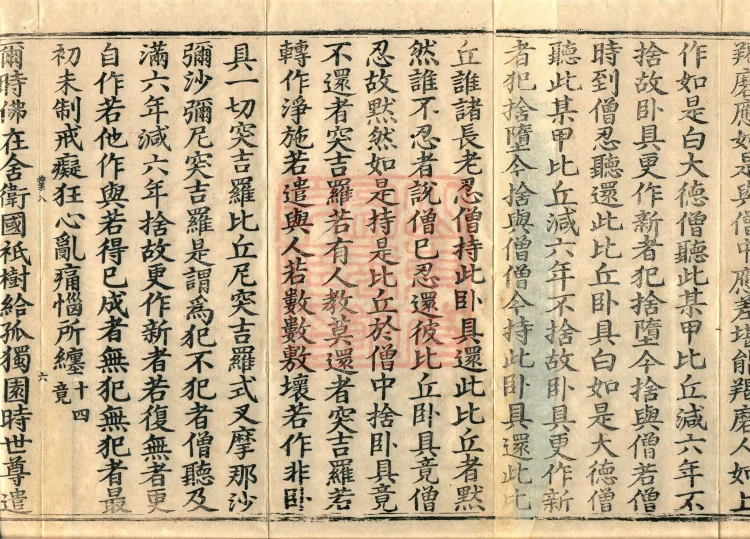 羯磨應如是與僧中應差堪能羯磨人如上
作如是白大德僧聽此某甲比丘減六年不
捨故臥具更作新者犯捨墮今捨與僧若僧
時到僧忍聽還此比丘臥具白如是大德僧
聽此某甲比丘減六年不捨故臥具更作新
者犯捨墮今捨與僧僧今持此臥具還此比
丘誰諸長老忍僧持此臥具還此比丘者默
然誰不忍者說僧已忍還彼比丘臥具竟僧
忍故默然如是持是比丘於僧中捨臥具竟
不還者突吉羅若有人教莫還者突吉羅若
轉作淨施若遣與人若數數敷壞若作非臥
具一切突吉羅比丘尼突吉羅式叉摩那沙
彌沙彌尼突吉羅是謂為犯不犯者僧聽及
滿六年減六年捨故更作新者若復無者更
自作若他作與若得已成者無犯無犯者最
初未制戒癡狂心亂痛惱所纏十四竟
業八 六
爾時佛在舍衛國祇樹給孤獨園時世尊遣